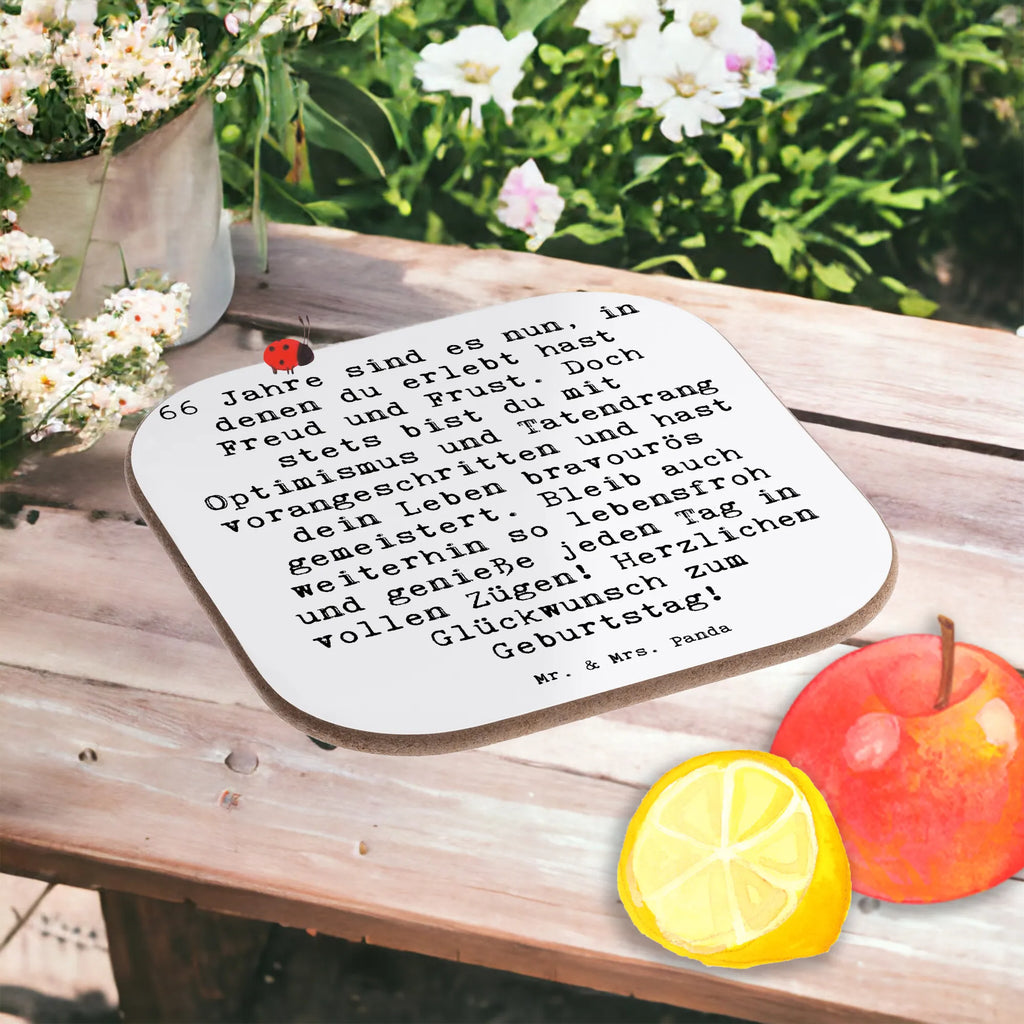 66 Jahre sind es nun, in
denen du erlebt hast
Freud und Frust. Doch
stets bist du mit
Optimismus und Tatendrang
vorangeschritten und hast
dein Leben bravourös
gemeistert. Bleib auch
weiterhin so lebensfroh
und genieße jeden Tag in
vollen Zügen! Herzlichen
Glückwunsch zum
Geburtstag!
Mr. & Mrs. Panda